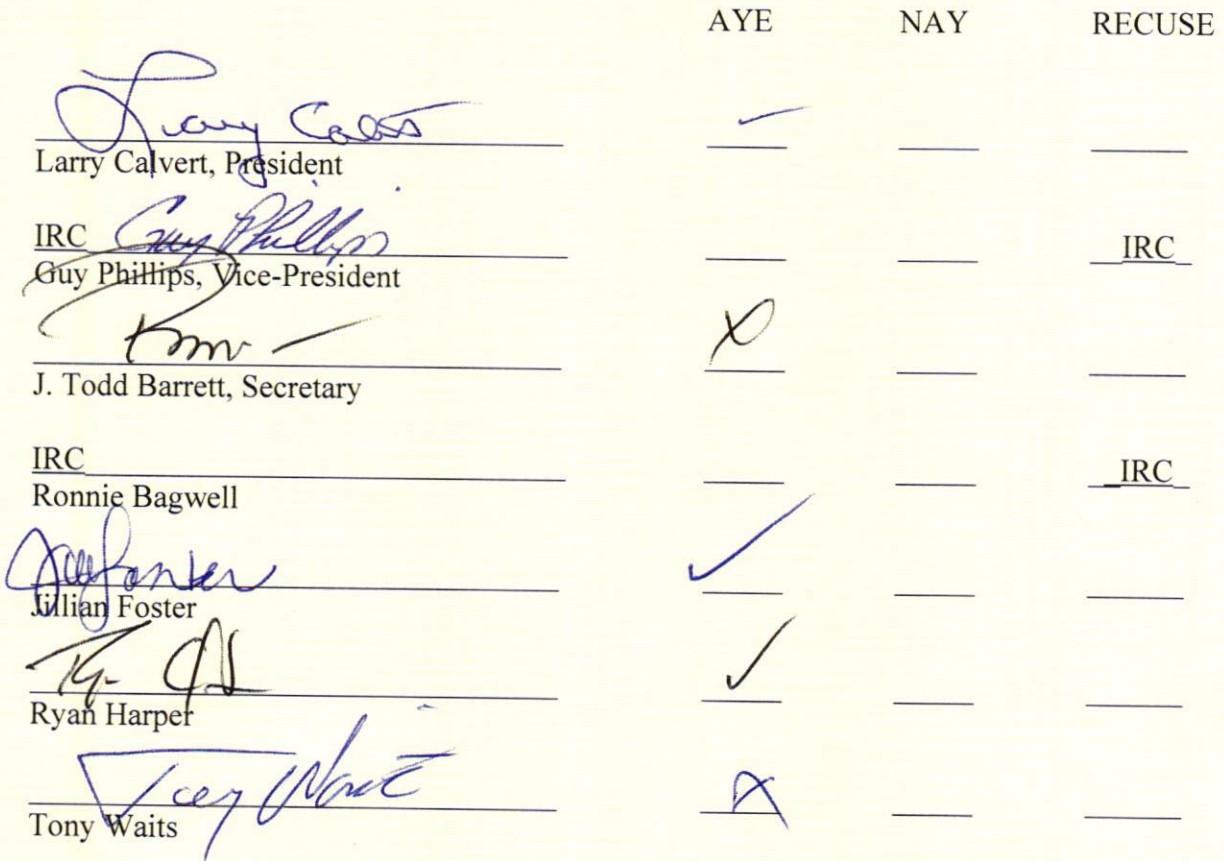 AYE NAY RECUSE
Larry Calvert
Larry Calvert, President
IRC Guy Phillips IRC
Guy Phillips, Vice-President
X
J. Todd Barrett, Secretary
IRC IRC
Ronnie Bagwell
✓
Jillian Foster
✓
Ryan Harper
Tony Waits X
Tony Waits